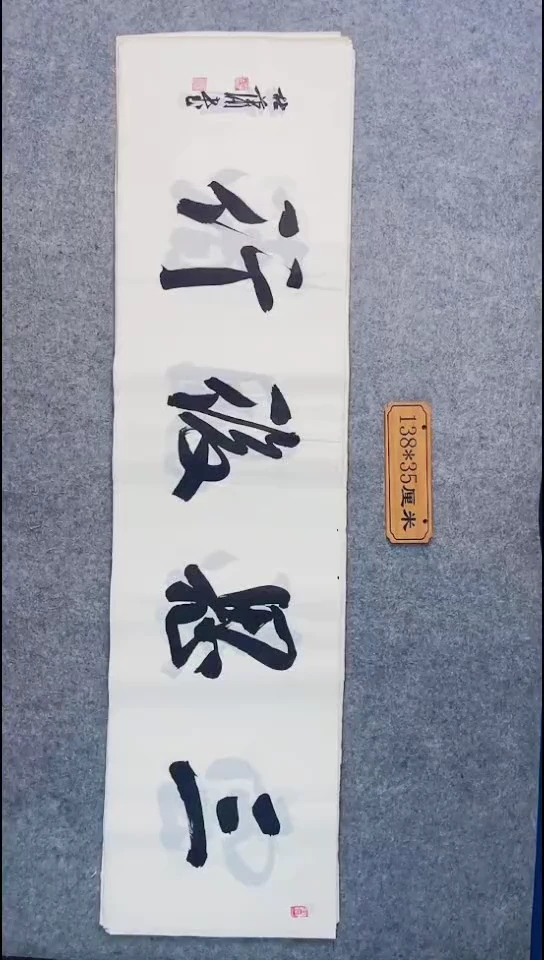 三思後行
138*35厘米